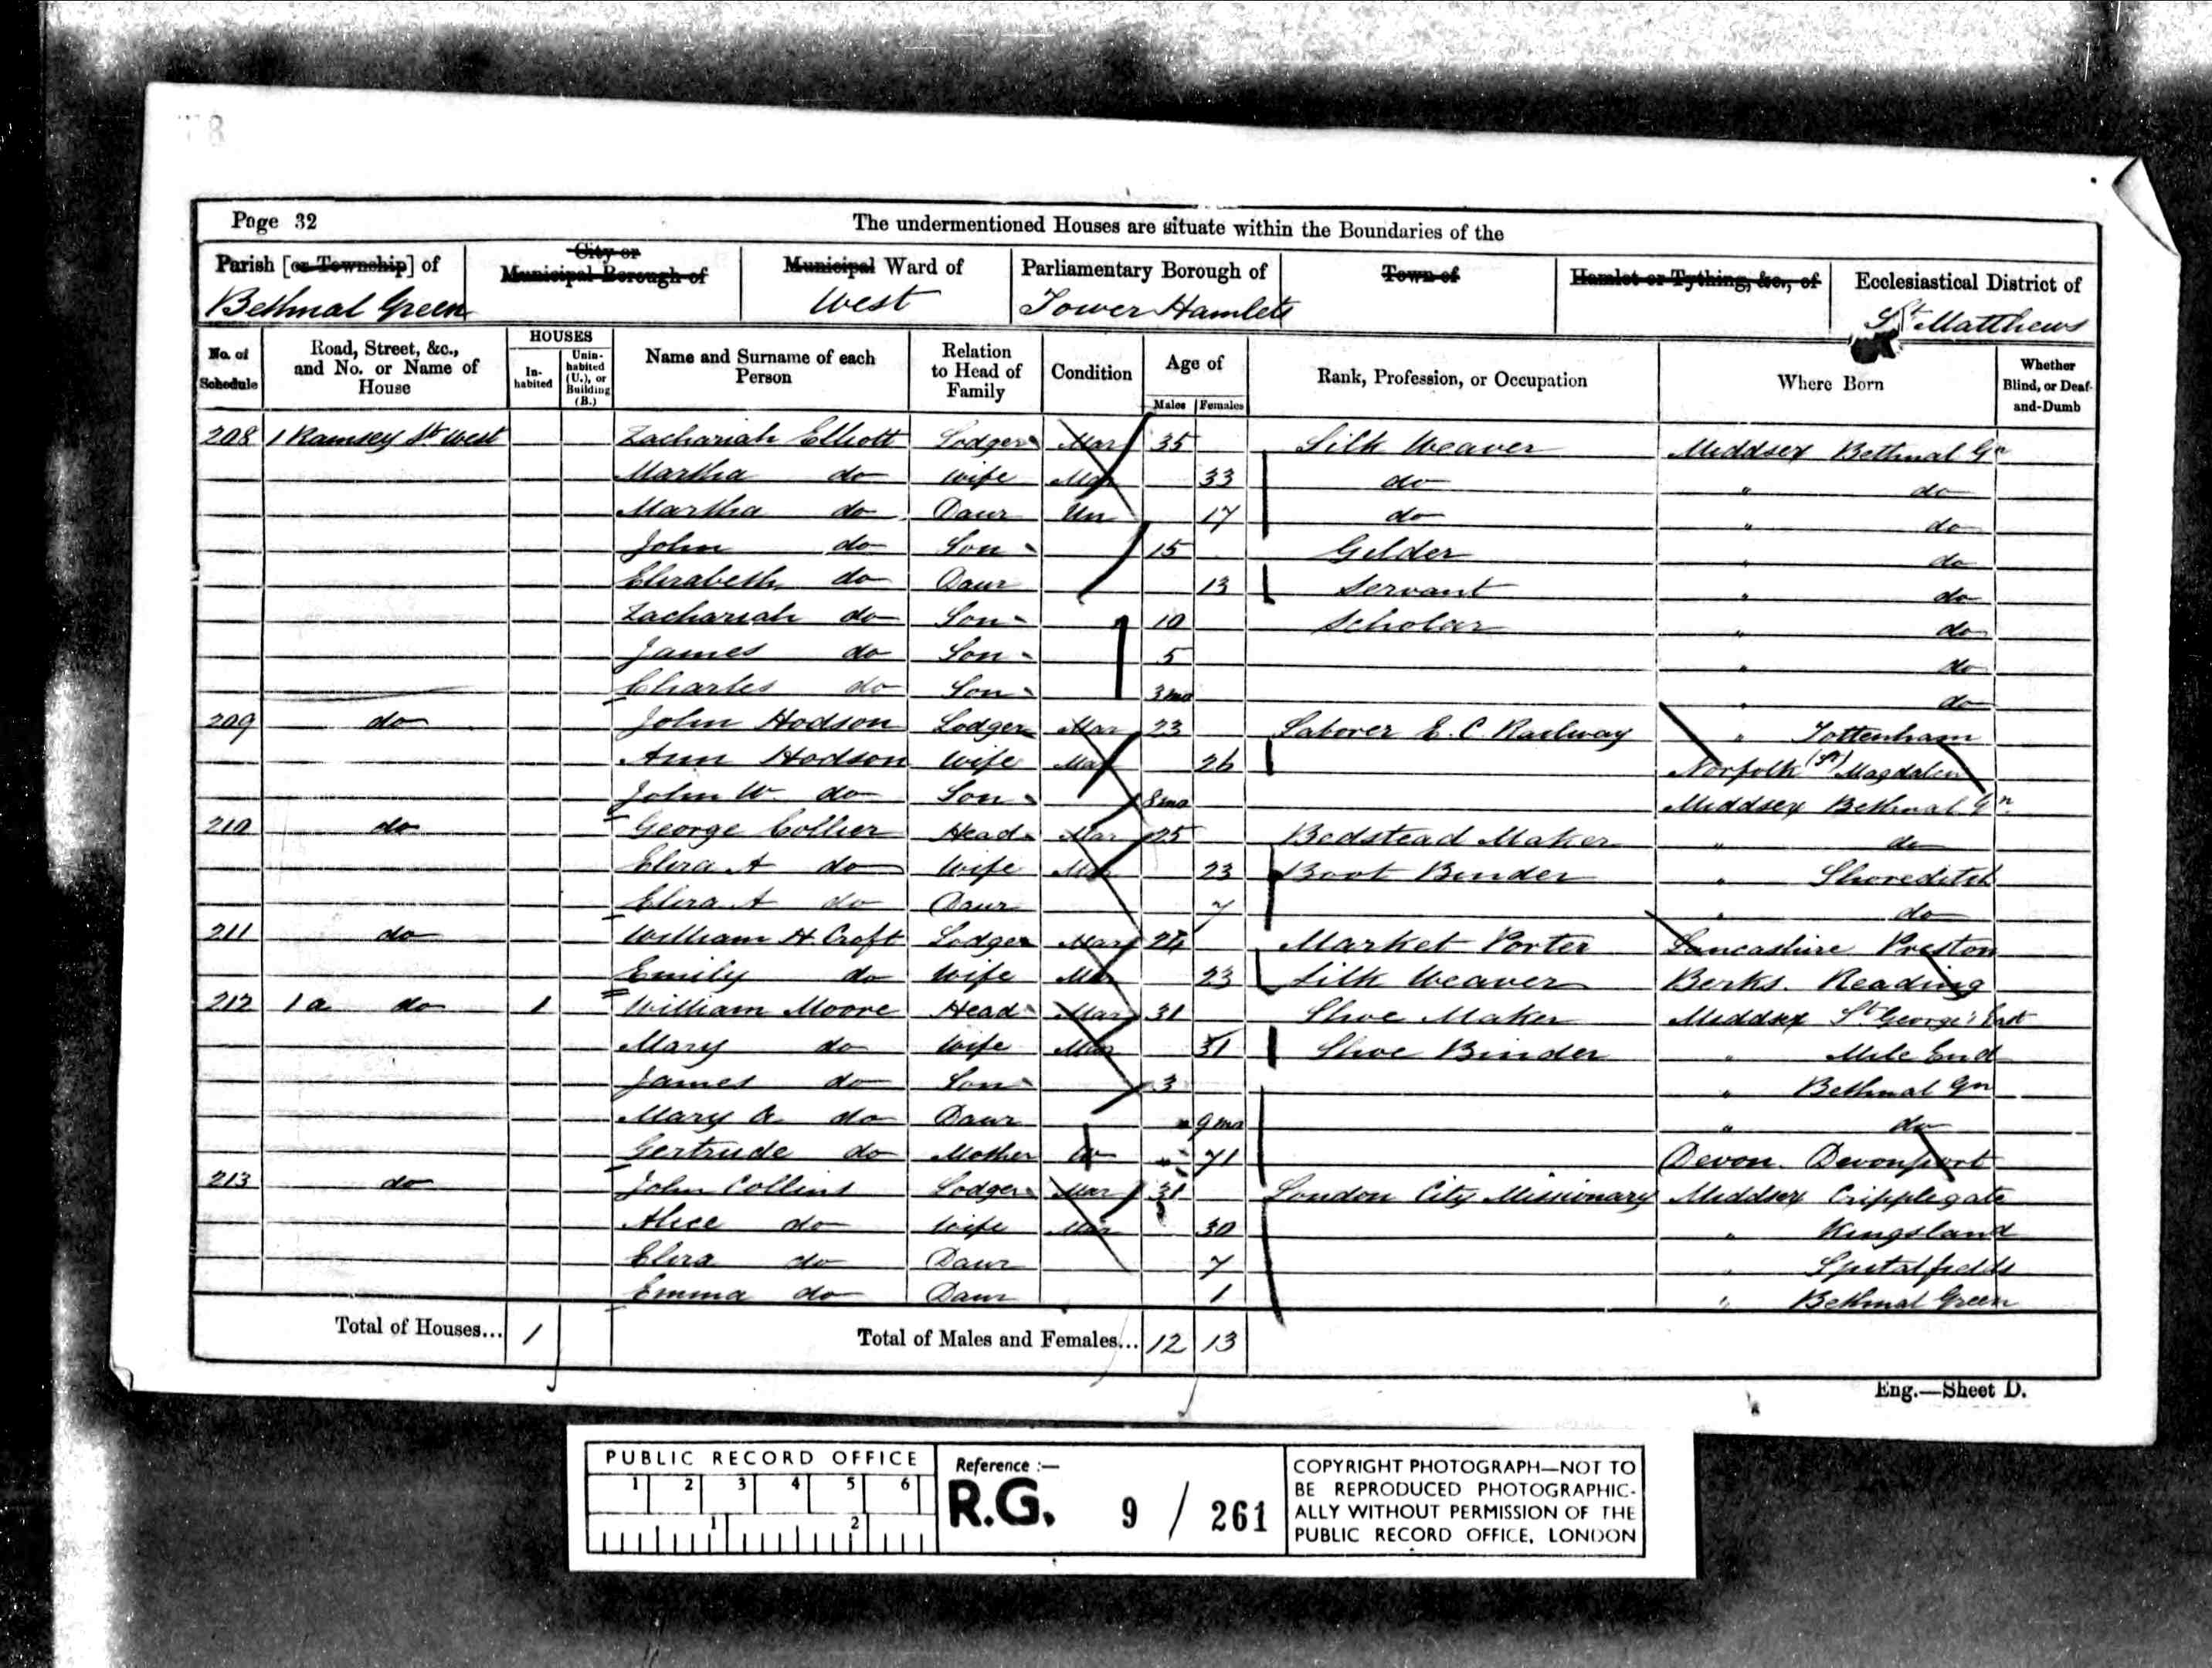 Page 32
The undermentioned Houses are situate within the Boundaries of the
Parish [or Township] of Bethnal Green
City or Municipal Borough of
Municipal Ward of West
Parliamentary Borough of Tower Hamlets
Town of
Hamlet or Tything, &c., of
Ecclesiastical District of St Matthews
No. of Schedule
Road, Street, &c., and No. or Name of House
HOUSES
In-habited
Unin-habited (U.), or Building (B.)
Name and Surname of each Person
Relation to Head of Family
Condition
Age of
Males
Females
Rank, Profession, or Occupation
Where Born
Whether Blind, or Deaf-and-Dumb
208 1 Ramsey St West Zachariah Elliott Lodger Mar 35 Silk Weaver Middsex Bethnal Gn
Martha do Wife Mar 33 do " do
Martha do Daur Un 17 do " do
John do Son 15 Gilder " do
Elizabeth do Daur 13 Servant " do
Zachariah do Son 10 Scholar " do
James do Son 5 " do
Charles do Son 3 mo " do
209 do John Hodson Lodger Mar 23 Laborer E. C. Railway " Tottenham
Ann Hodson Wife Mar 26 Norfolk (St) Magdalen
John W. do Son 8 mo Middsex Bethnal Gn
210 do George Collier Head Mar 25 Bedstead Maker " do
Eliza A do Wife Mar 23 Boot Binder " Shoreditch
Eliza A do Daur 7 " do
211 do William H Croft Lodger Mar 24 Market Porter Lancashire Preston
Emily do Wife Mar 23 Silk Weaver Berks. Reading
212 1 a do 1 William Moore Head Mar 31 Shoe Maker Middsex St George's East
Mary do Wife Mar 31 Shoe Binder " Mile End
James do Son 3 " Bethnal Gn
Mary A do Daur 9 mo " do
Gertrude do Mother W 71 Devon. Devonport
213 do John Collins Lodger Mar 31 London City Missionary Middsex Cripplegate
Alice do Wife Mar 30 " Kingsland
Eliza do Daur 7 " Spitalfields
Emma do Daur 1 " Bethnal Green
Total of Houses... 1
Total of Males and Females... 12 13
Eng.—Sheet D.
PUBLIC RECORD OFFICE
1 2 3 4 5 6
1 2
Reference :—
R.G. 9 / 261
COPYRIGHT PHOTOGRAPH—NOT TO
BE REPRODUCED PHOTOGRAPHIC-
ALLY WITHOUT PERMISSION OF THE
PUBLIC RECORD OFFICE, LONDON